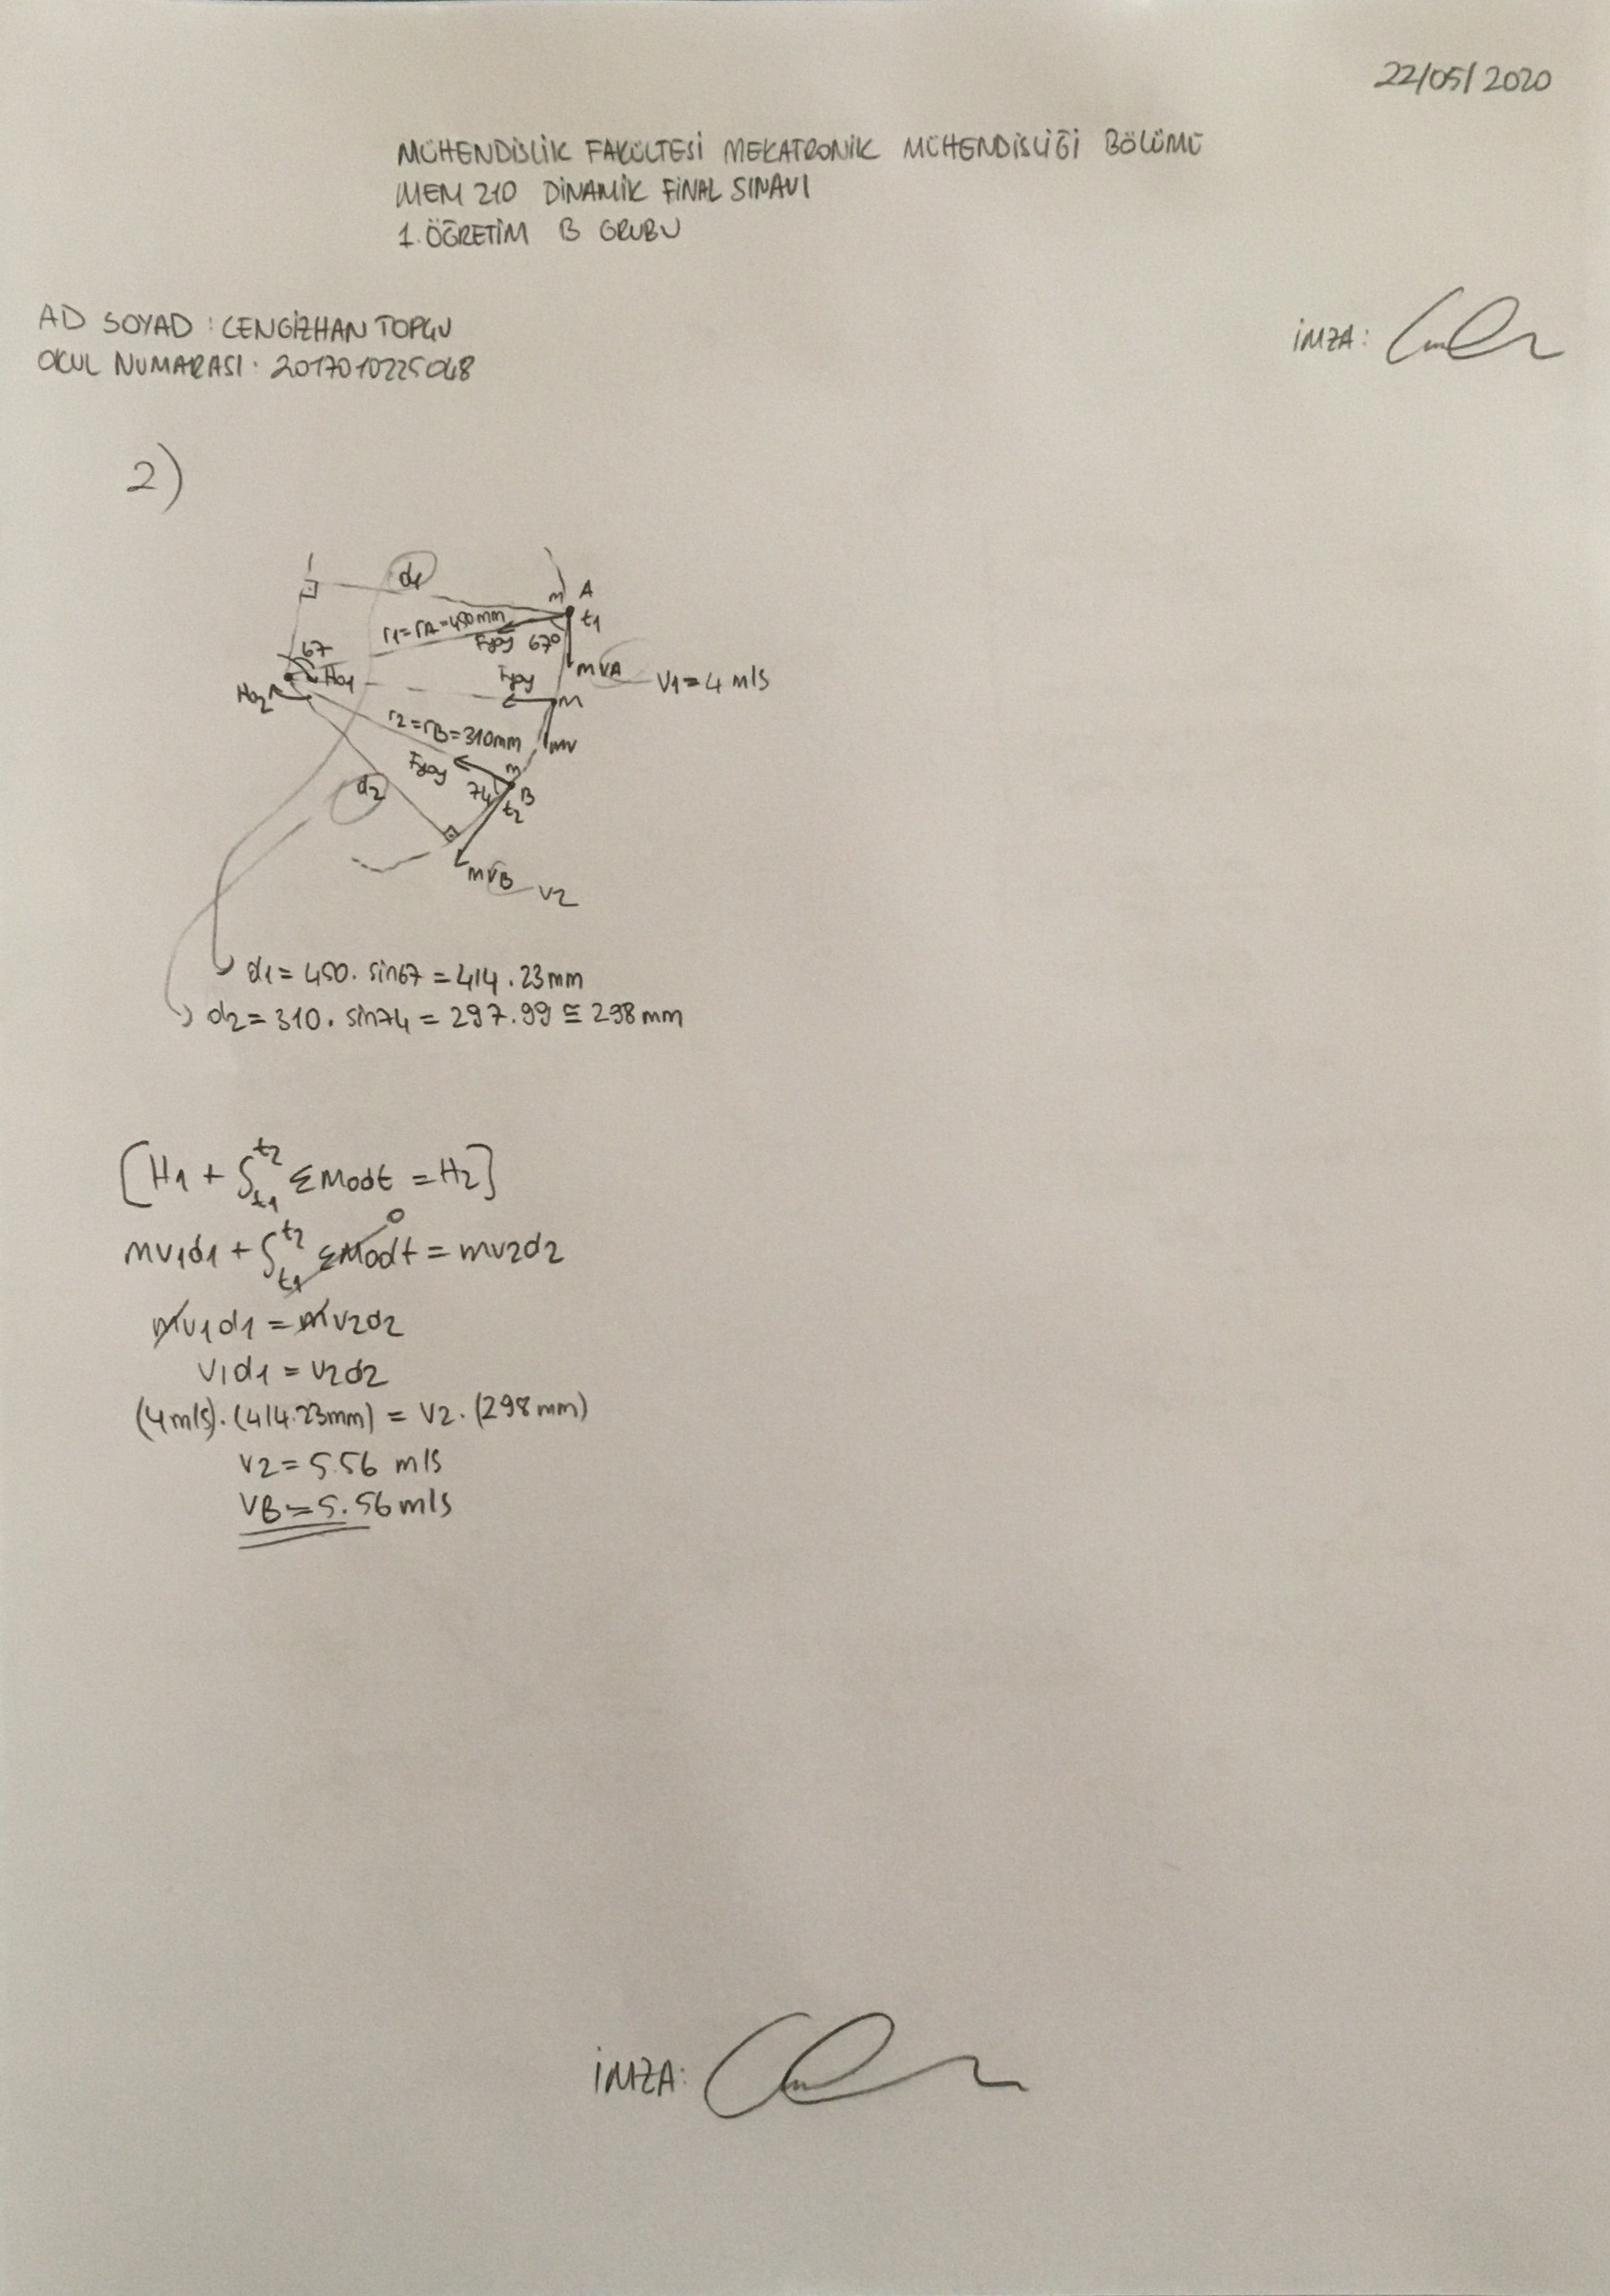 22/05/2020
MÜHENDİSLİK FAKÜLTESİ MEKATRONİK MÜHENDİSLİĞİ BÖLÜMÜ
MEM 210 DİNAMİK FİNAL SINAVI
1. ÖĞRETİM B GRUBU
AD SOYAD : CENGİZHAN TOPÇU
OKUL NUMARASI : 2017010225048
İMZA:
2)
d1
m A
t1
r1=rA=450mm
Fyay 67°
67
Ho1
mVA
V1=4 m/s
Ho2
Fyay
m
r2=rB=310mm
mv
Fyay
m
d2
74
B
t2
mVB
V2
d1 = 450. sin67 = 414.23mm
d2 = 310. sin74 = 297.99 ≅ 298mm
[H1 + ∫t1^t2 ΣModt = H2]
mv1d1 + ∫t1^t2 ΣModt = mv2d2
0
mv1d1 = mv2d2
V1d1 = v2d2
(4m/s).(414.23mm) = V2.(298mm)
V2 = 5.56 m/s
VB = 5.56 m/s
İMZA: